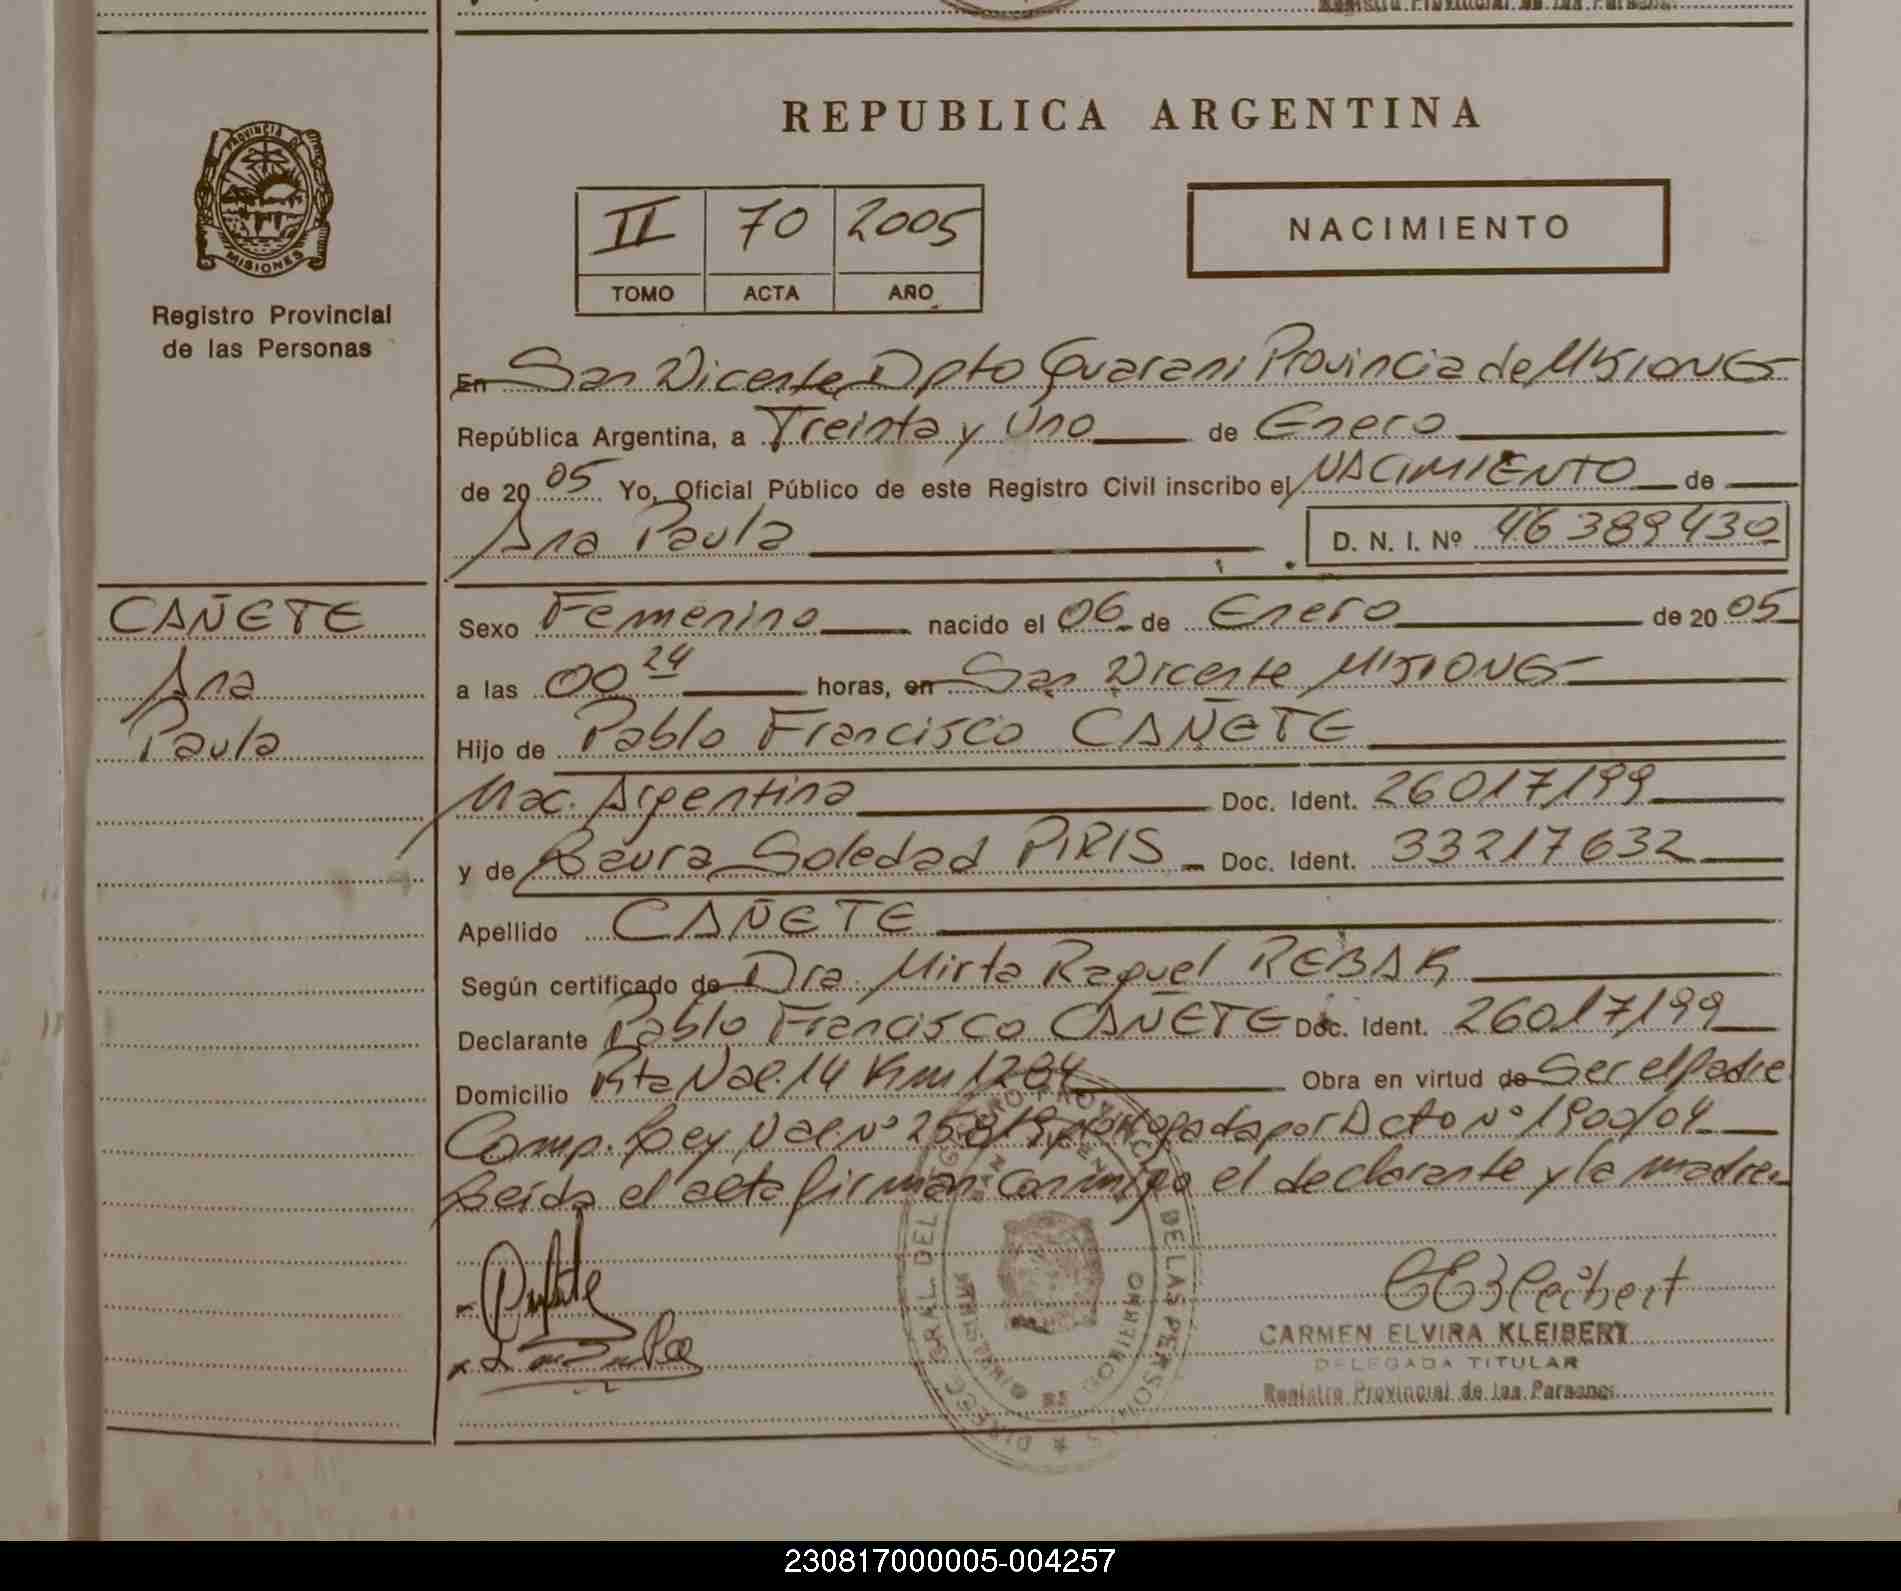 PROVINCIA DE
MISIONES
Registro Provincial
de las Personas
CAÑETE
Ana
Paula
Registro Provincial de las Persona
REPUBLICA ARGENTINA
II 70 2005
TOMO ACTA AÑO
NACIMIENTO
En San Vicente Dpto Guarani Provincia de MISIONES
República Argentina, a Treinta y Uno de Enero
de 2005 Yo, Oficial Público de este Registro Civil inscribo el NACIMIENTO de
Ana Paula D. N. I. Nº 46389430
Sexo Femenino nacido el 06 de Enero de 2005
a las 00 24 horas, en San Vicente MISIONES
Hijo de Pablo Francisco CAÑETE
Nac. Argentina Doc. Ident. 26017199
y de Laura Soledad PIRIS Doc. Ident. 33217632
Apellido CAÑETE
Según certificado de Dra. Mirta Raquel REBAK
Declarante Pablo Francisco CAÑETE Doc. Ident. 26017199
Domicilio Rta Nac. 14 Km 1284 Obra en virtud de Ser el Padre
Comp. Ley Nac. Nº 25819 prorrogada por Dcto Nº 1900/04
Leída el acta firman conmigo el declarante y la madre.
CARMEN ELVIRA KLEIBERT
DELEGADA TITULAR
Registro Provincial de las Personas
230817000005-004257